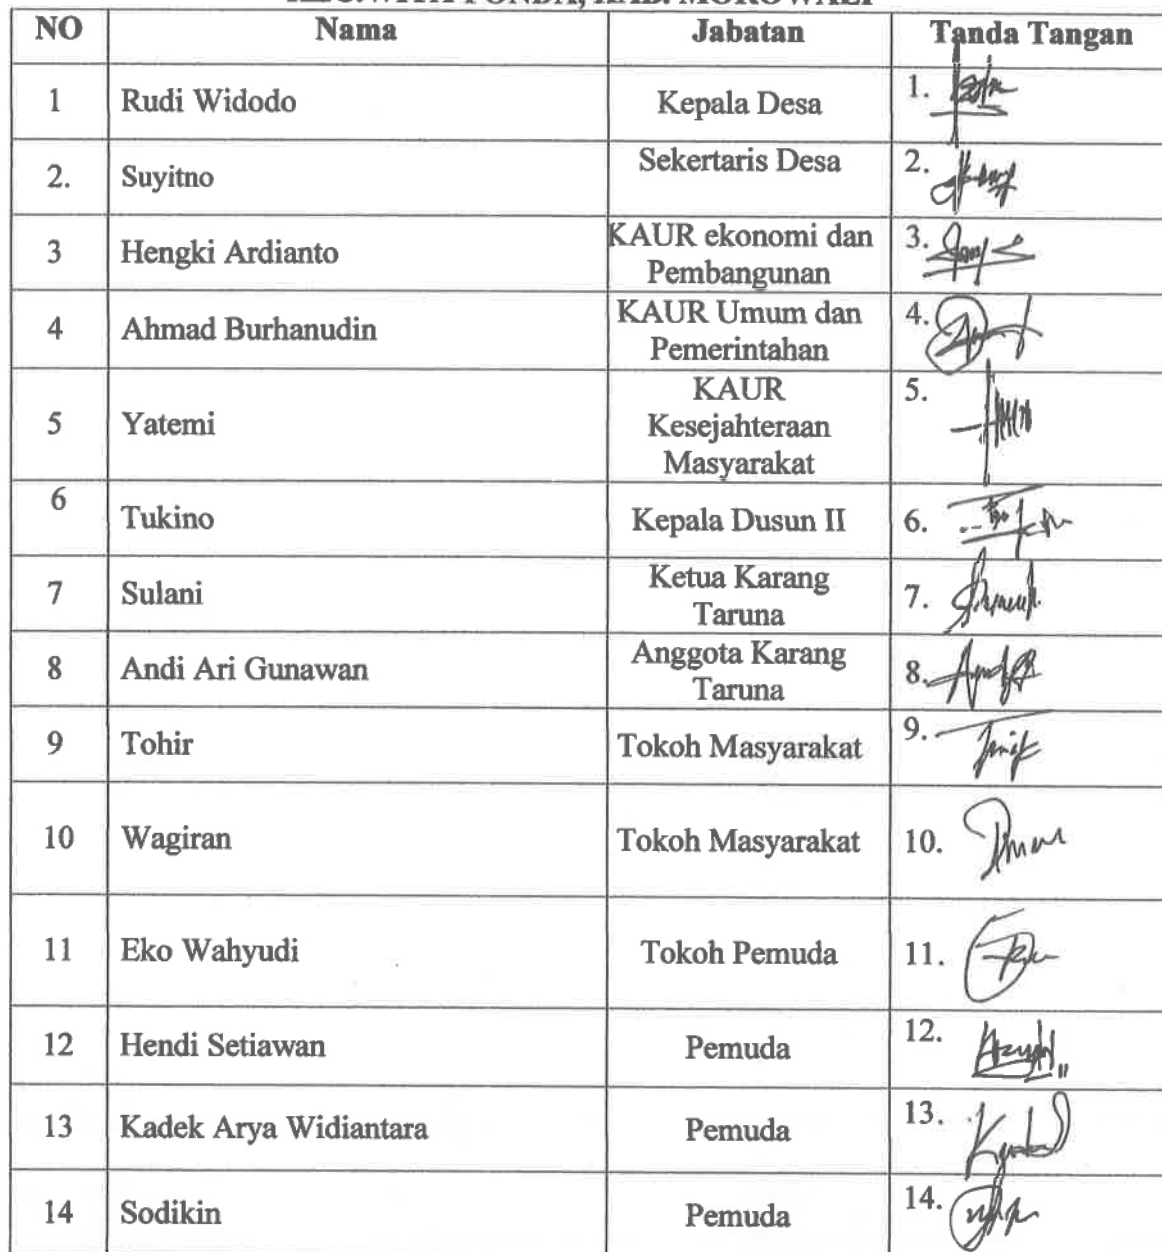 KEC. WITA PONDA, KAB. MOROWALI
NO Nama Jabatan Tanda Tangan
1 Rudi Widodo Kepala Desa 1.
2. Suyitno Sekertaris Desa 2.
3 Hengki Ardianto KAUR ekonomi dan Pembangunan 3.
4 Ahmad Burhanudin KAUR Umum dan Pemerintahan 4.
5 Yatemi KAUR Kesejahteraan Masyarakat 5.
6 Tukino Kepala Dusun II 6.
7 Sulani Ketua Karang Taruna 7.
8 Andi Ari Gunawan Anggota Karang Taruna 8.
9 Tohir Tokoh Masyarakat 9.
10 Wagiran Tokoh Masyarakat 10.
11 Eko Wahyudi Tokoh Pemuda 11.
12 Hendi Setiawan Pemuda 12.
13 Kadek Arya Widiantara Pemuda 13.
14 Sodikin Pemuda 14.